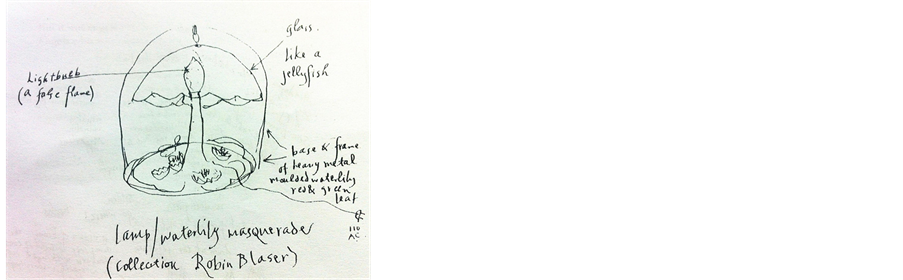 glass.
like a
jellyfish
Lightbulb
(a false flame)
base & frame
of heavy metal
moulded waterlily
red & green
leaf
110
AC
lamp/waterlily masquerade
(collection Robin Blaser)